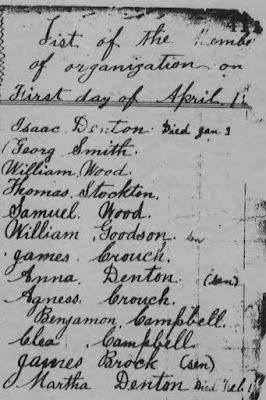 List of the Membe
of organization on
First day of April 1
Isaac Denton Died Jan
Georg Smith.
William Wood.
Thomas Stockton.
Samuel Wood.
William Goodson. sen
James Crouch.
Anna Denton (sen)
Agness Crouch.
Benjamon Campbell.
Clea Campbell
James Brock (sen)
Martha Denton Died Feb 1